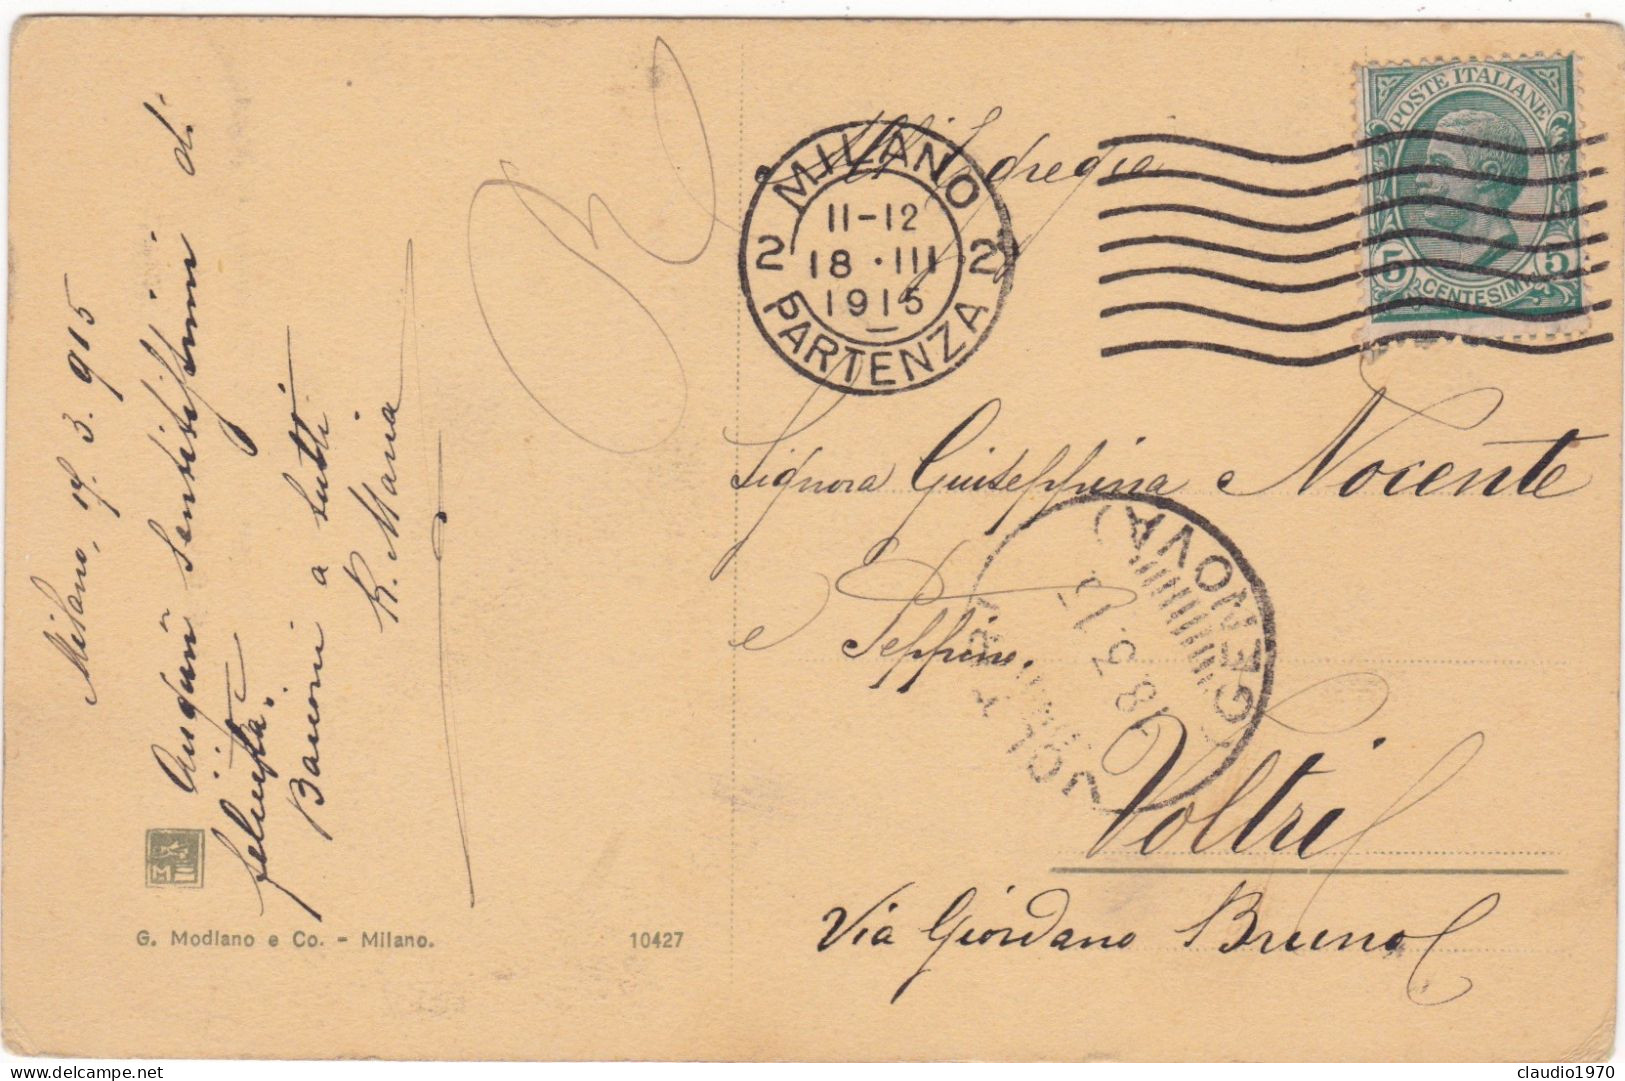 Milano, 17. 3. 915
Auguri sentitissimi di
felicità.
Bacioni a tutti
R. Maria
G. Modiano e Co. - Milano.
10427
MILANO
PARTENZA
2 2
11-12
18 · III
1915
POSTE ITALIANE
5 5
CENTESIMI
Egregia
Signora Giuseppina Nocente
e Peppino.
(GENOVA)
18.3.15
Voltri
Via Giordano Bruno
claudio1970